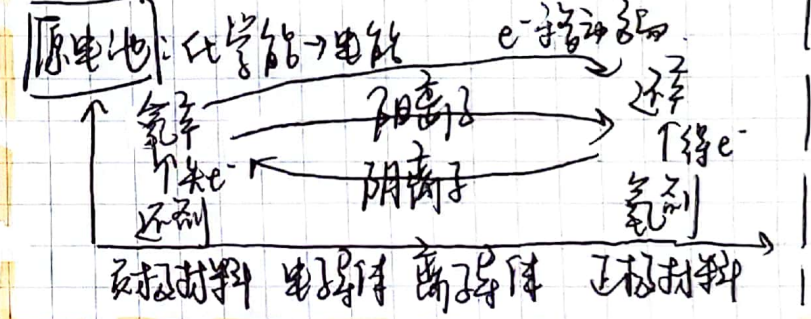 原电池:化学能→电能 e⁻移动方向
氧产 阳离子 还产
↑失e⁻ 阴离子 ↑得e⁻
还剂 氧剂
负极材料 电子导体 离子导体 正极材料